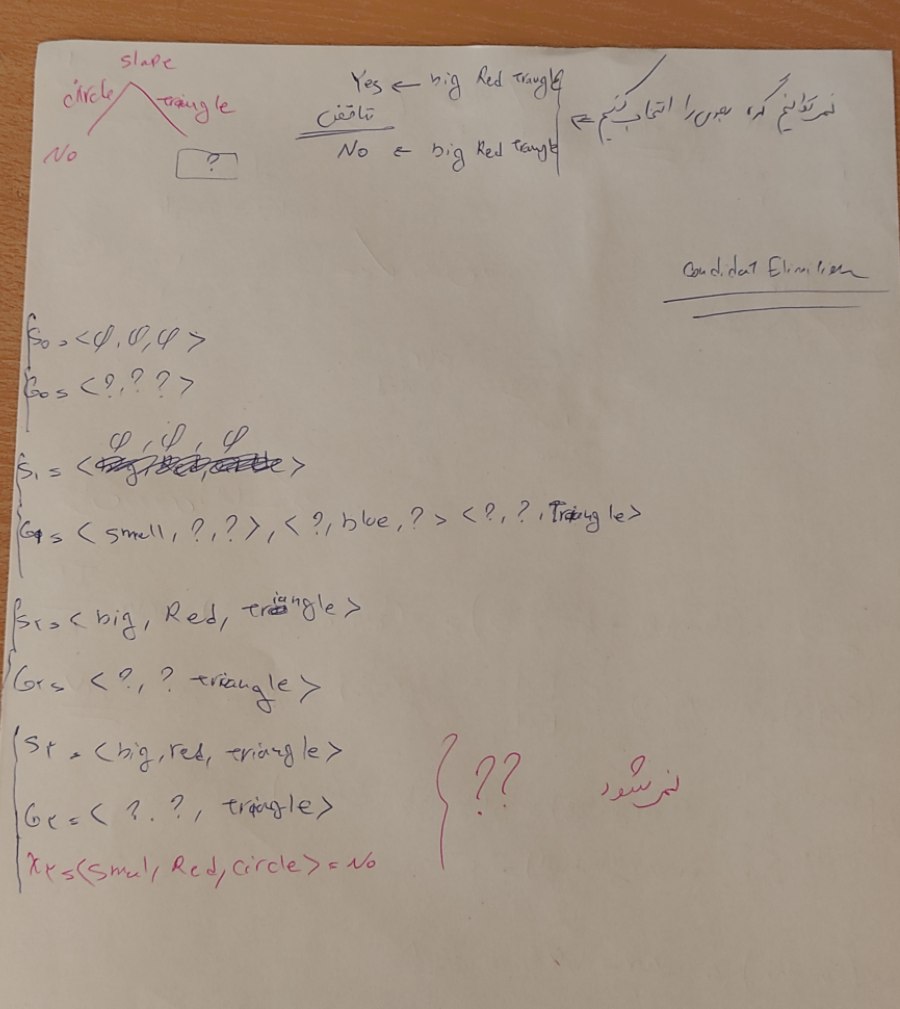 slape
circle triangle
No ?
Yes ← big Red triangle
تناقض
No ← big Red triangle
نمی‌توانیم گره بعدی را انتخاب کنیم ⇐
Candidat Elimination
S₀ = <φ, φ, φ>
G₀ = <?, ? ?>
φ, φ, φ
S₁ = < >
G₁ = <small, ?, ?>, <?, blue, ?> <?, ?, Triangle>
S۲ = <big, Red, triangle>
G۲ = <?, ? triangle>
S۳ = <big, red, triangle>
G۳ = <?. ?, triangle>
?? نمی‌شود
X۳ = <Smal, Red, circle> = No